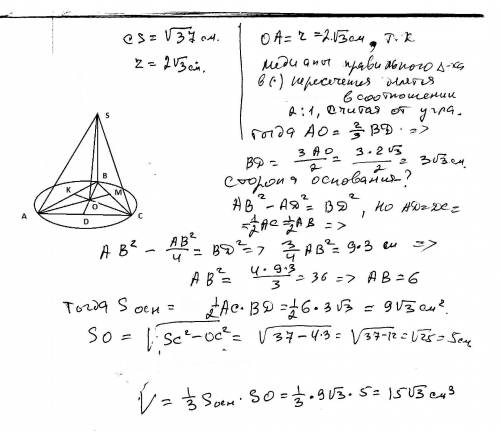 CS = √37 см.
r = 2√3 см.
OA = r = 2√3 см, т.к
медианы правильного Δ-ка
в (·) пересечения делятся
в соотношении
2:1, считая от угла.
тогда AO = 2/3 BD =>
BD = 3AO/2 = 3·2√3/2 = 3√3 см.
Сторона основания?
AB² - AD² = BD², но AD = DC =
= 1/2 AC = 1/2 AB =>
AB² - AB²/4 = BD² => 3/4 AB² = 9·3 см =>
AB² = 4·9·3/3 = 36 => AB = 6
Тогда Sосн = 1/2 AC · BD = 1/2 6·3√3 = 9√3 см².
SO = √SC² - OC² = √37-4·3 = √37-12 = √25 = 5см
V = 1/3 Sосн · SO = 1/3 · 9√3 · 5 = 15√3 см³
S
B
K
M
O
A
D
C